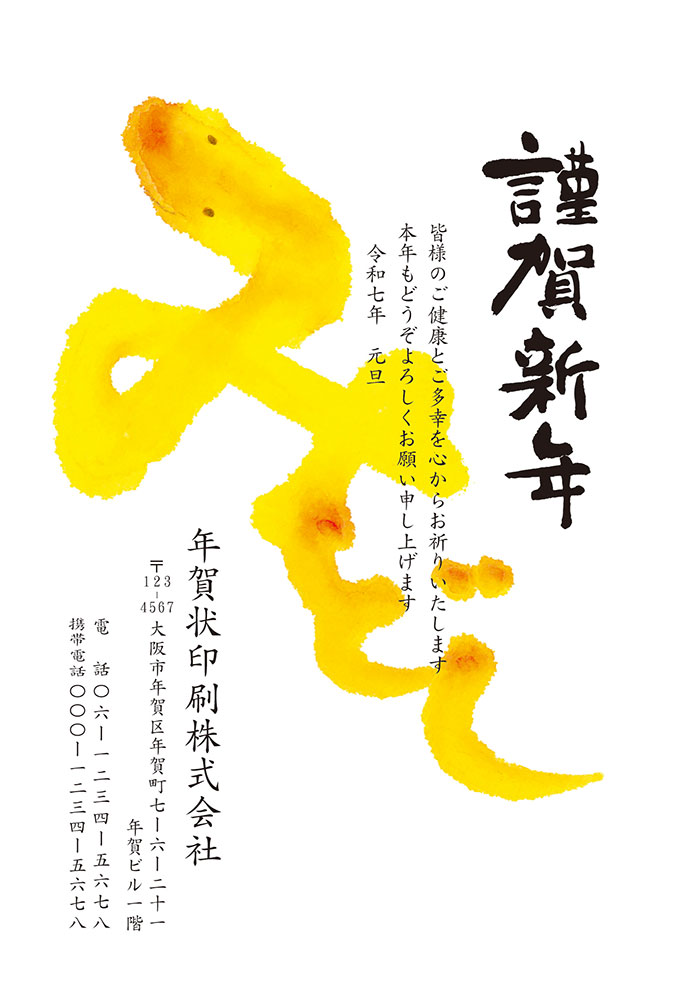 謹賀新年
皆様のご健康とご多幸を心からお祈りいたします
本年もどうぞよろしくお願い申し上げます
令和七年　元旦
みどし
年賀状印刷株式会社
〒123-4567 大阪市年賀区年賀町七ー六ー二十一
年賀ビル一階
電　話〇六ー一二三四ー五六七八
携帯電話〇〇〇ー一二三四ー五六七八